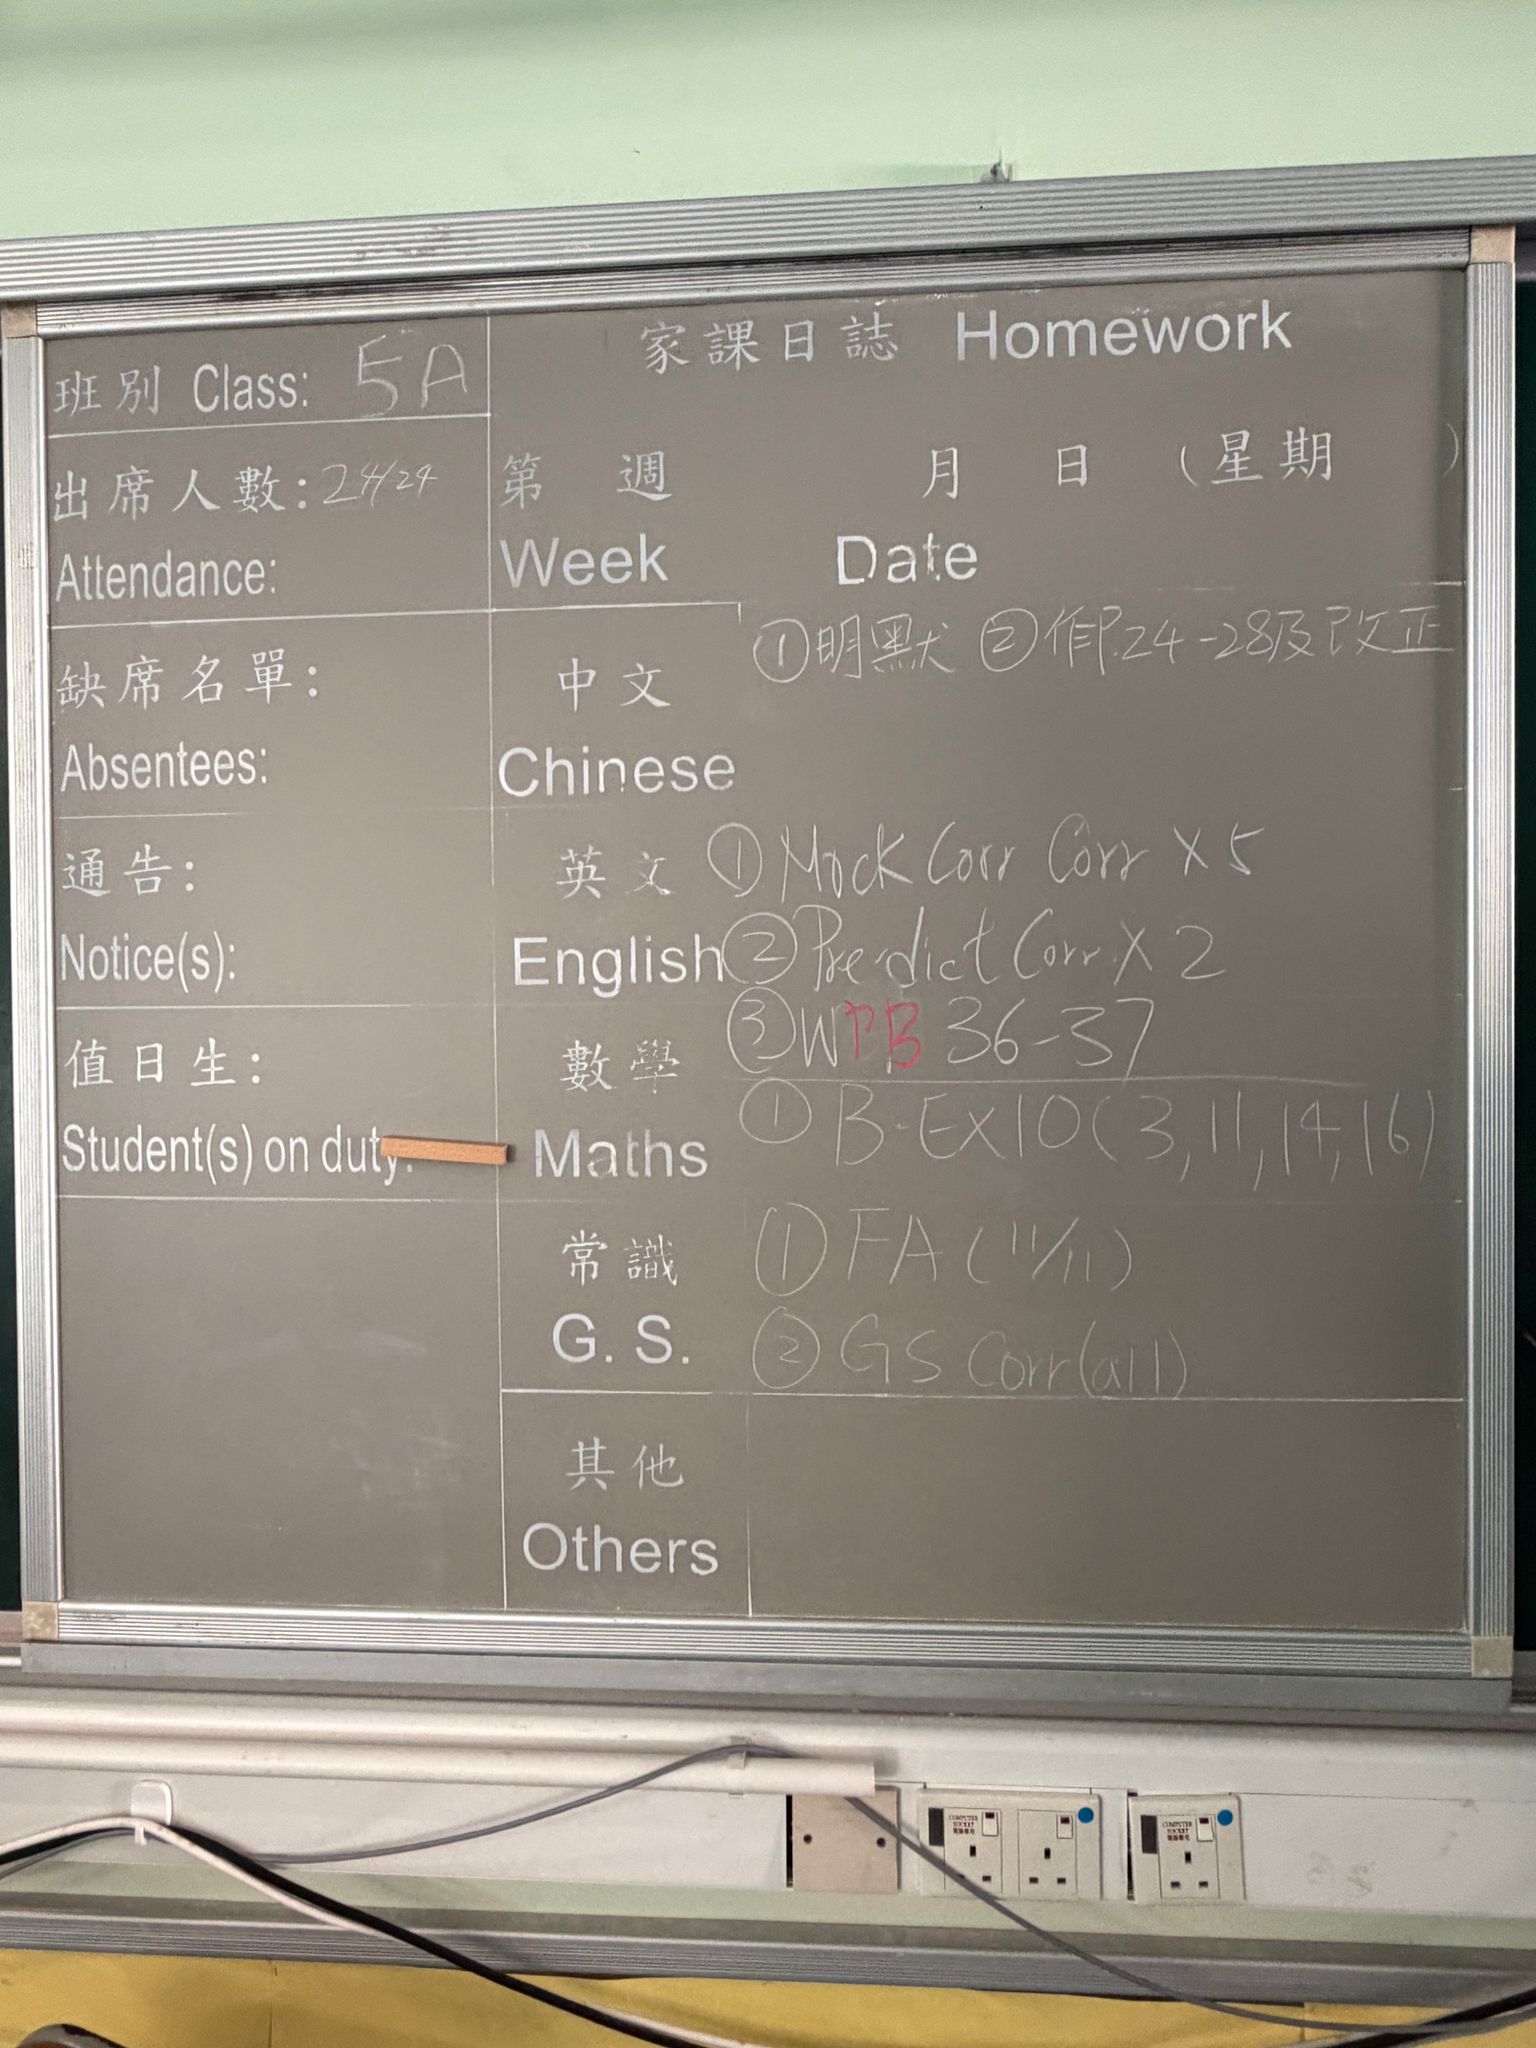 家課日誌 Homework
班別 Class: 5A
出席人數: 24/24
Attendance:
第 週 月 日 (星期 )
Week Date
缺席名單:
Absentees:
中文
Chinese
①明默 ②作P.24-28及改正
通告:
Notice(s):
英文
English
① Mock Corr Corr x 5
② Predict Corr x 2
③ WPB 36-37
值日生:
Student(s) on duty:
數學
Maths
① B.Ex10(3,11,14,16)
常識
G. S.
① FA (11/11)
② GS Corr(all)
其他
Others
COMPUTER SOCKET
COMPUTER SOCKET